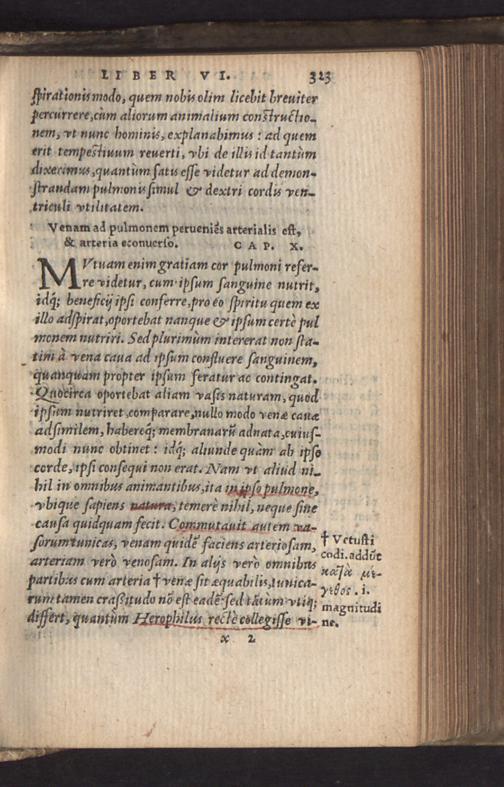 LIBER VI. 323
ſpirationis modo, quem nobis olim licebit breuiter
percurrere, cùm aliorum animalium conſtructio-
nem, vt nunc hominis, explanabimus: ad quem
erit tempeſtiuum reuerti, vbi de illis id tantùm
dixerimus, quantùm ſatis eſſe videtur ad demon-
ſtrandam pulmonis ſimul & dextri cordis ven-
triculi vtilitatem.
Venam ad pulmonem perueniẽs arterialis eſt,
& arteria econuerſo. CAP. X.
MVtuam enim gratiam cor pulmoni refer-
re videtur, cum ipſum ſanguine nutrit,
idq; beneficij ipſi conferre, pro eo ſpiritu quem ex
illo adſpirat, oportebat nanque & ipſum certè pul
monem nutriri. Sed plurimùm intererat non ſta-
tim à vena caua ad ipſum confluere ſanguinem,
quanquam propter ipſum feratur ac contingat.
Quocirca oportebat aliam vaſis naturam, quod
ipſum nutriret, comparare, nullo modo venæ cauæ
adſimilem, habereq; membranarũ adnata, cuiuſ-
modi nunc obtinet: idq; aliunde quàm ab ipſo
corde, ipſi conſequi non erat. Nam vt aliud ni-
hil in omnibus animantibus, ita in ipſo pulmone,
vbique ſapiens natura, temerè nihil, neque ſine
cauſa quidquam fecit. Commutauit autem va-
ſorum tunicas, venam quidẽ faciens arterioſam,
arteriam verò venoſam. In alijs verò omnibus
partibus cum arteria † venæ ſit æquabilis, tunica-
rum tamen craßitudo nõ eſt eadẽ: ſed tãtùm vtiq;
differt, quantùm Herophilus rectè collegiſſe vi-
x 2
† Vetuſti
codi. addũt
μέ-
γεθος .i.
magnitudi
ne.